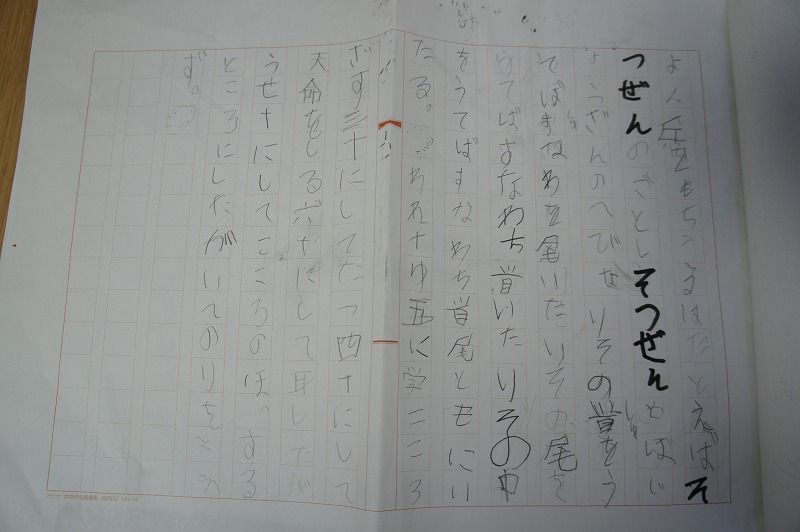 よく兵をもちうるはたとえばそ
つぜんのごとしそつぜんとはじ
ょうざんのへびなりその首をう
しゅ
てばすなわち尾いたりその尾を
うてばすなわち首いたりその中
をうてばすなわち首尾ともにい
たる。われ十ゆ五に学こころ
ざす三十にしてたつ四十にして
天命をしる六十にして耳したが
うせ十にしてこころのほっする
ところにしたがいてのりをこへ
ず。
アピカ 中性再生紙使用